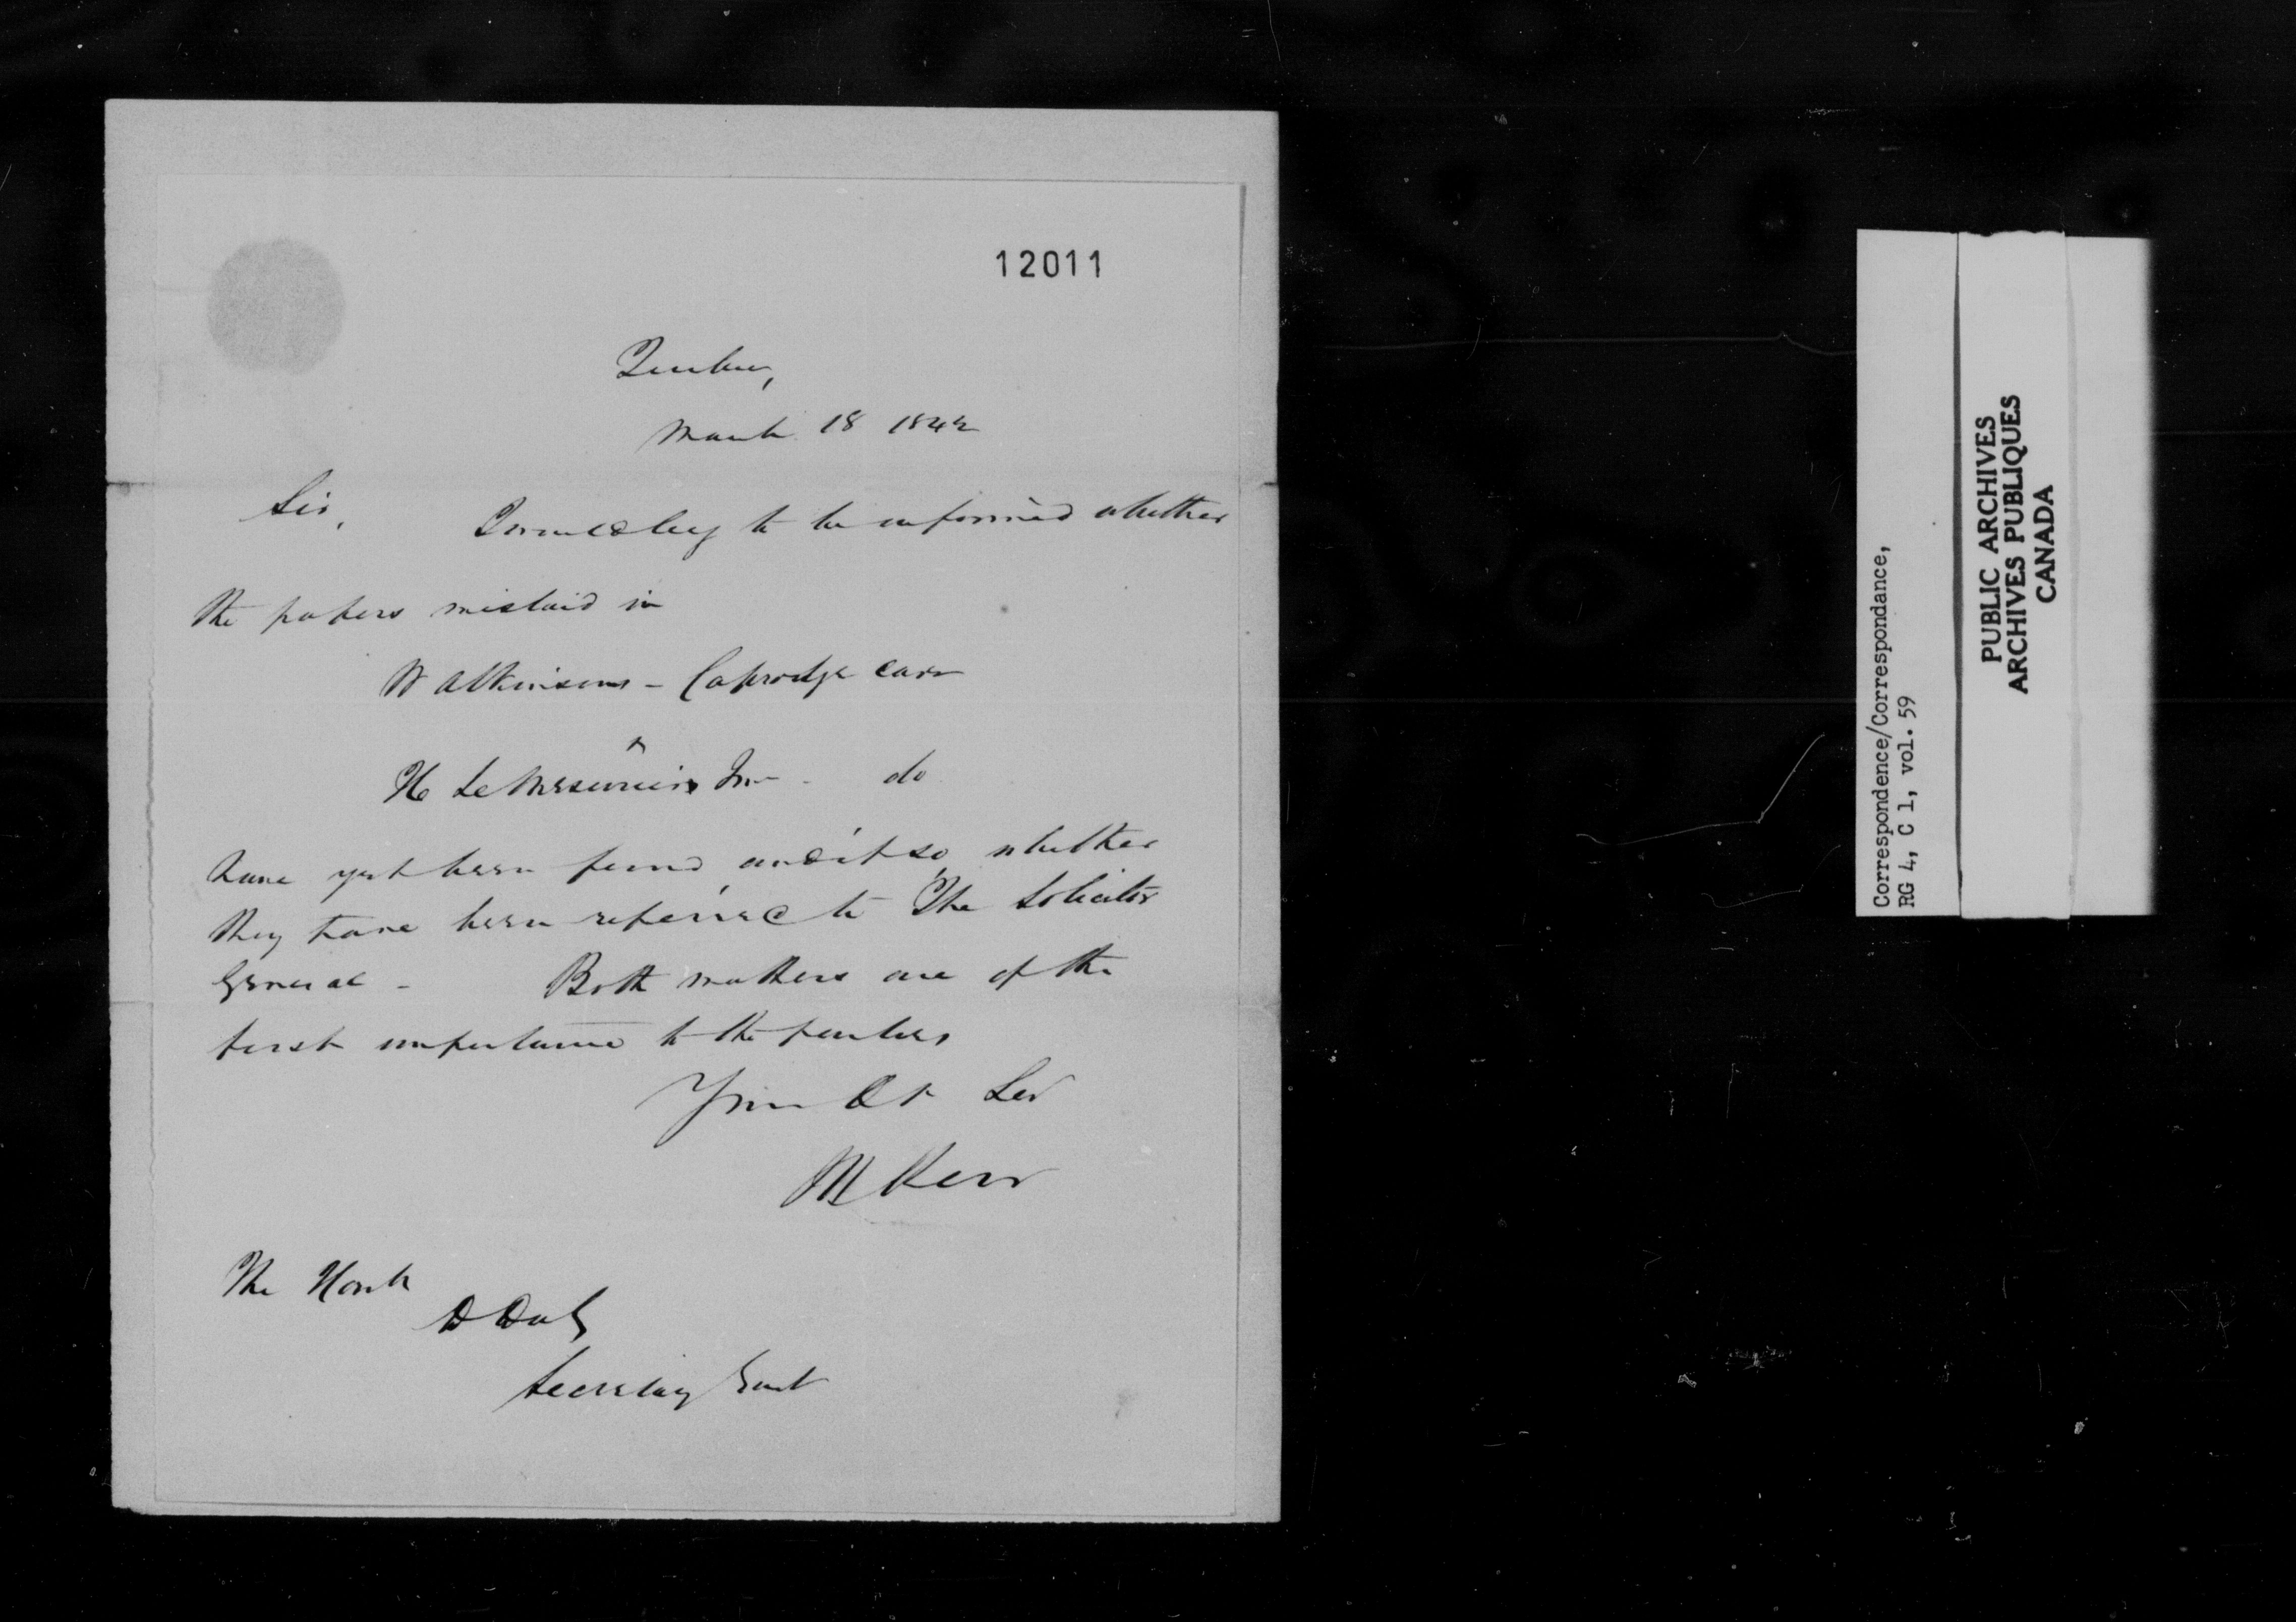 12011
Quebec,
March 18 1842
Sir,
I would beg to be informed whether
the papers mislaid in
W Atkinsons - case
H LeMesurier's - do
have yet been found, and if so, whether
they have been referred to The Solicitor
General - Both matters are of the
first importance to the parties
Your Ob Ser
M Kerr
The Honb
D Daly
Secretary East
Correspondence/Correspondance,
RG 4, C 1, vol. 59
PUBLIC ARCHIVES
ARCHIVES PUBLIQUES
CANADA